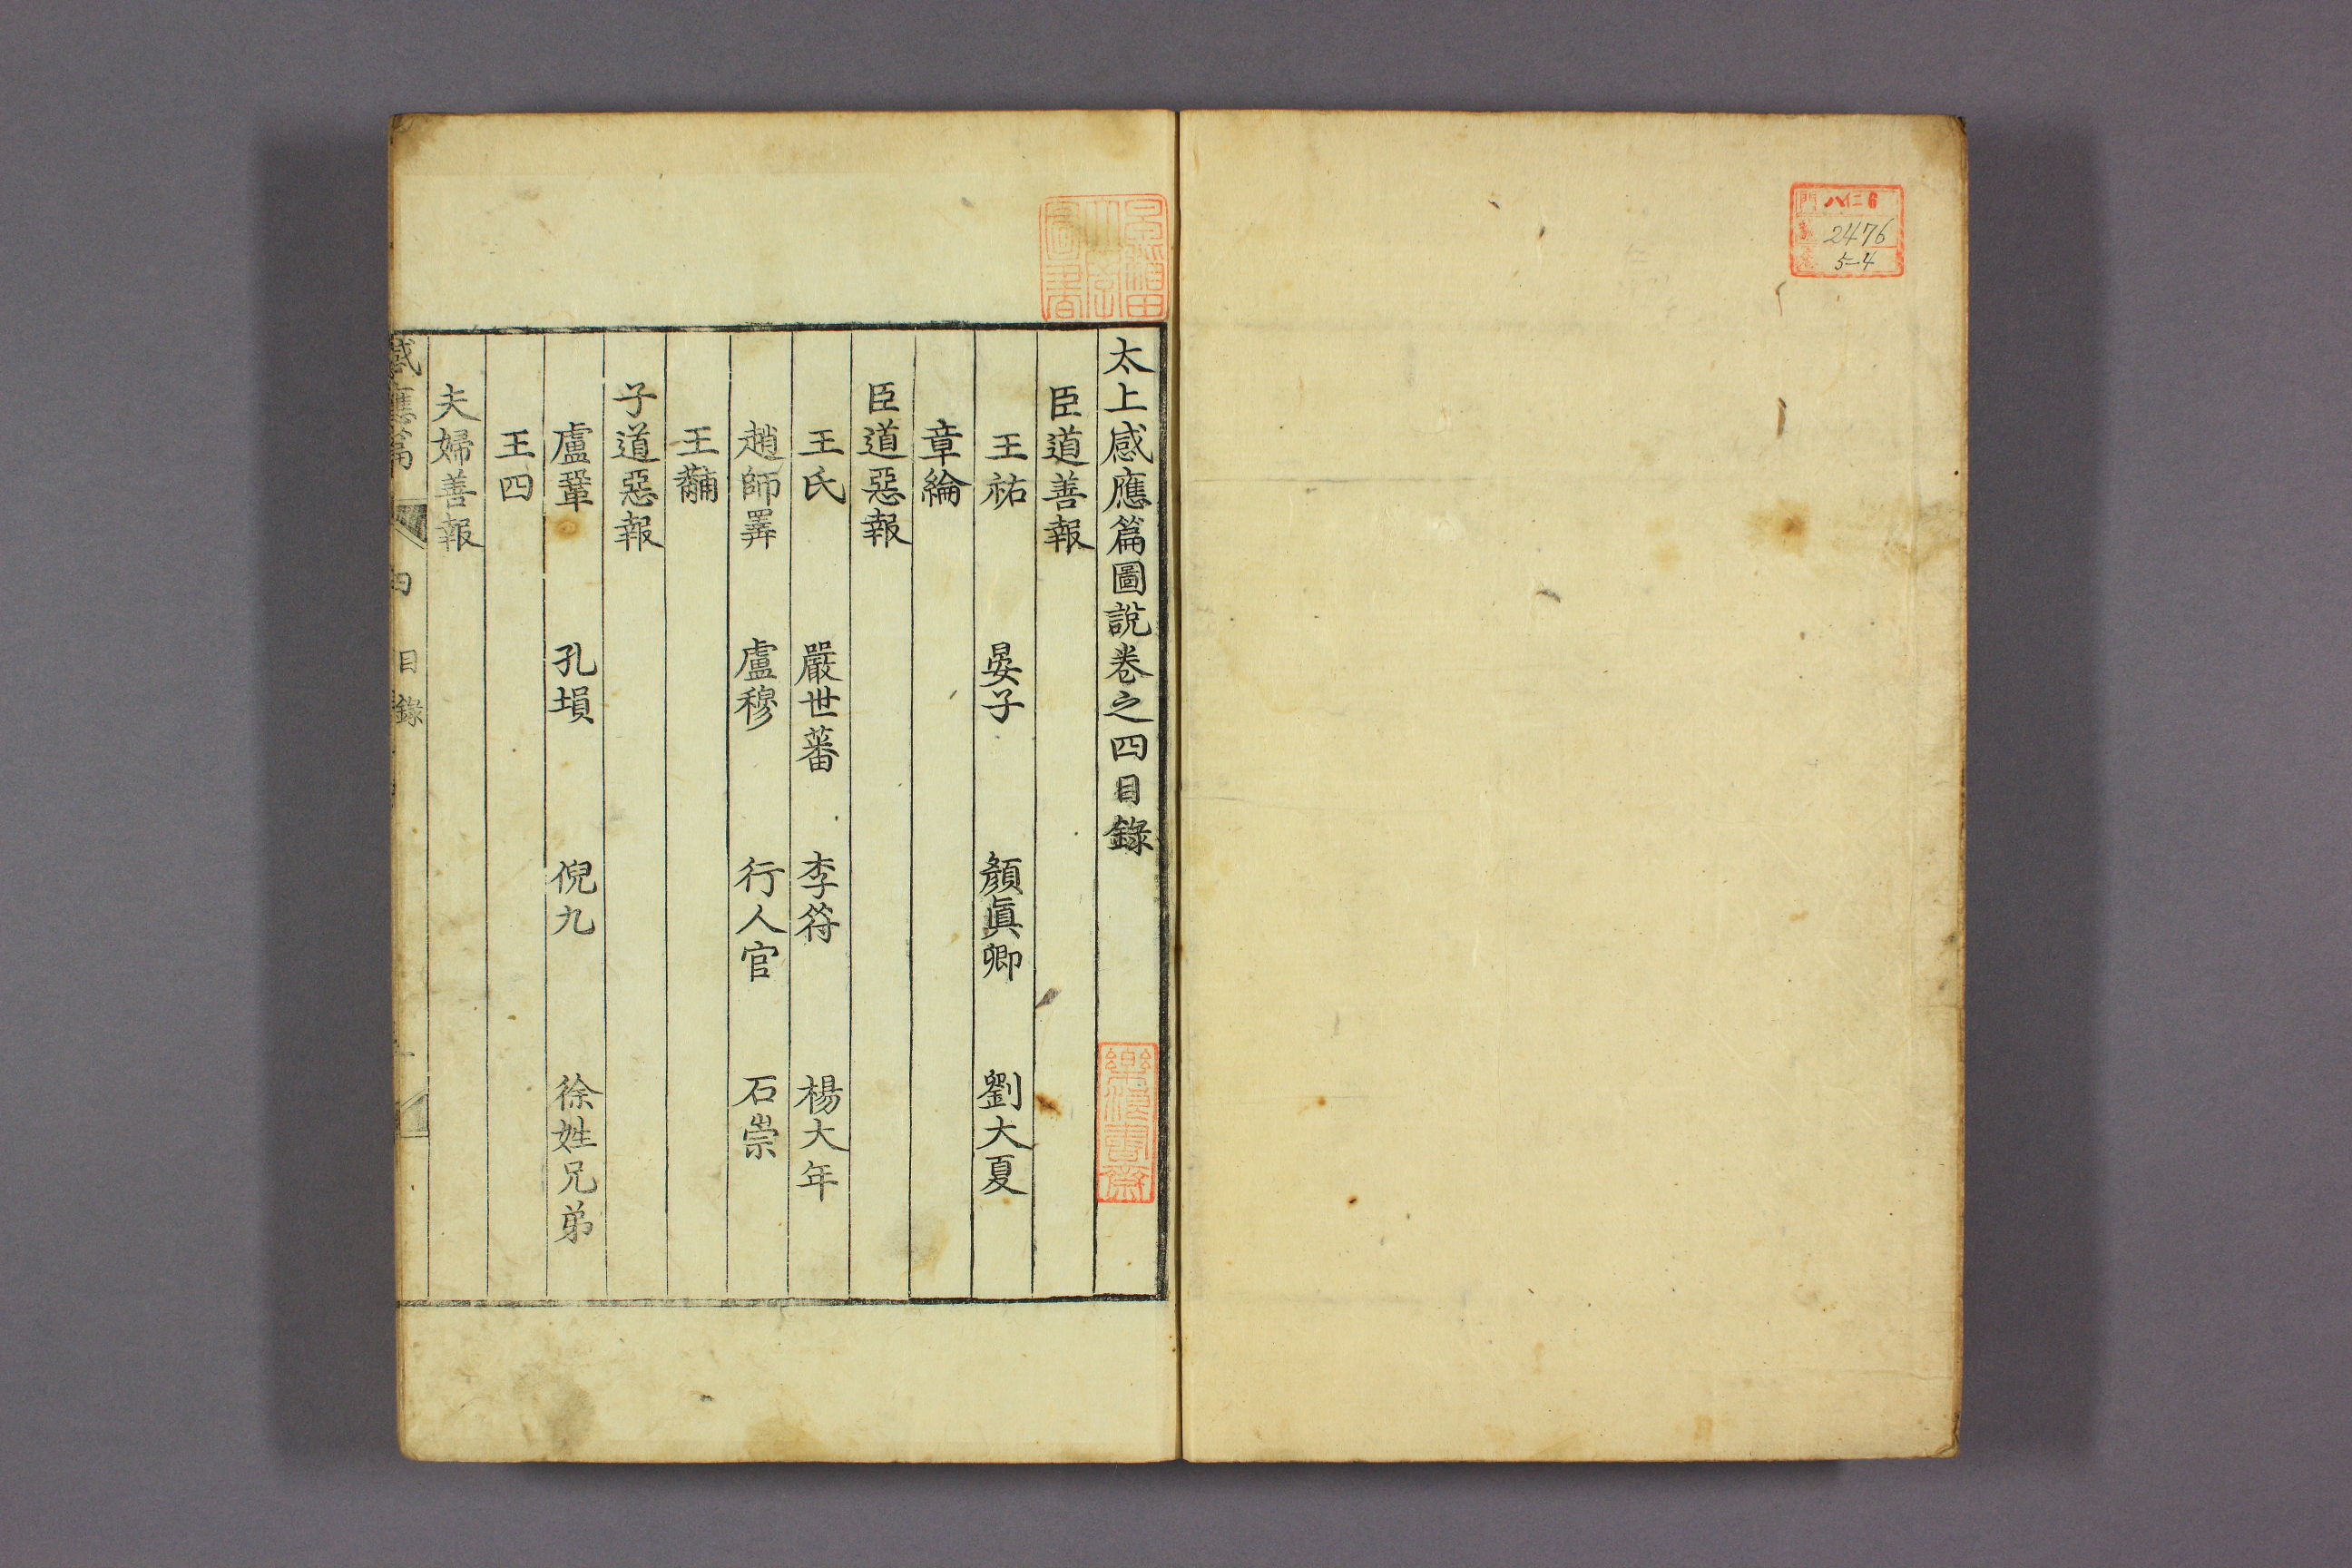 門 八仁6
號 2476
卷 5-4
早稲田大學圖書
太上感應篇圖說卷之四目錄
樂浪書齋
臣道善報
王祐 晏子 顏眞卿 劉大夏
章綸
臣道惡報
王氏 嚴世蕃 李符 楊大年
趙師𢍰 盧穆 行人官 石崇
王黼
子道惡報
盧鞏 孔塤 倪九 徐姓兄弟
王四
夫婦善報
感應篇 四 目錄